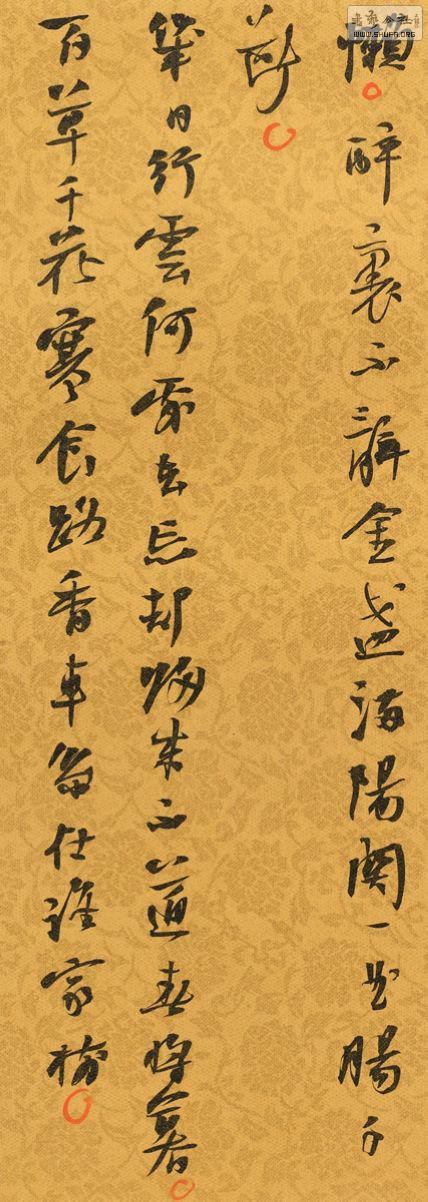 懶醉裏不辭金盞滿陽關一曲腸千
斷
幾日行雲何處去忘却歸來不道春將暮
百草千花寒食路香車繫在誰家樹
WWW.SHUFA.ORG